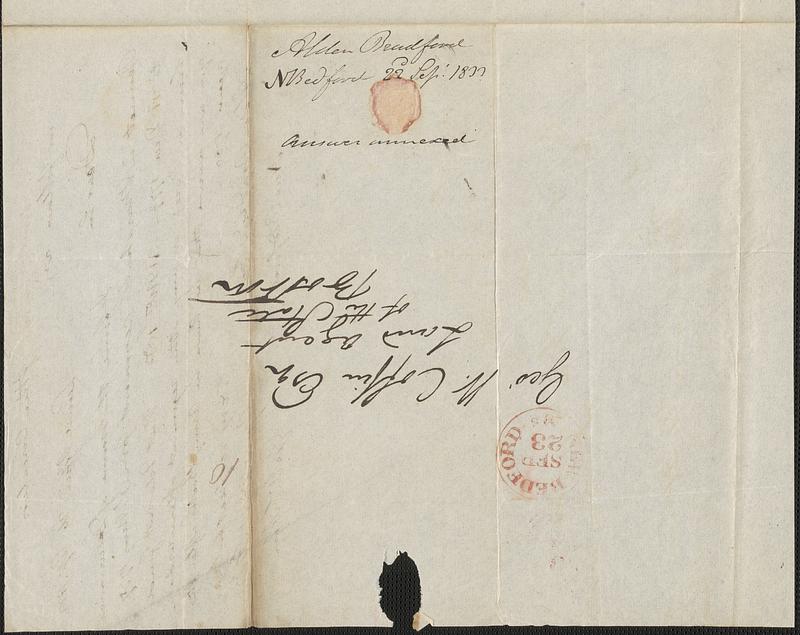 Alden Bradford
N Bedford 22d Sep. 1833
answer annexed
Geo. W. Coffin Esq
Land agent
of the State
Boston
10
BEDFORD
SEP
23